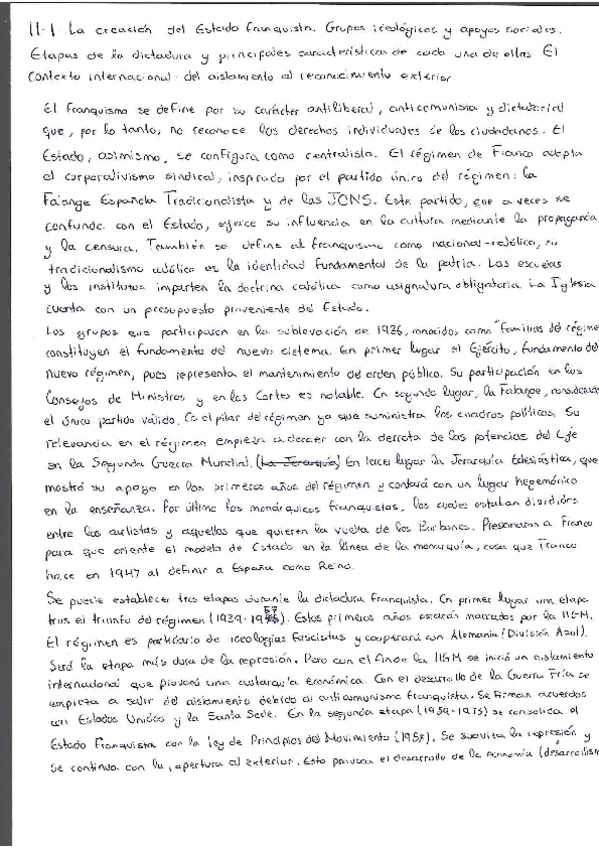 11.1 La creación del Estado franquista. Grupos ideológicos y apoyos sociales.
Etapas de la dictadura y principales características de cada una de ellas El
Contexto internacional: del aislamiento al reconocimiento exterior
El franquismo se define por su carácter antiliberal, anticomunista y dictatorial
que, por lo tanto, no reconoce los derechos individuales de los ciudadanos. El
Estado, asimismo, se configura como centralista. El régimen de Franco adopta
el corporativismo sindical, inspirado por el partido único del régimen: la
Falange Española Tradicionalista y de las JONS. Este partido, que a veces se
confunde con el Estado, ejerce su influencia en la cultura mediante la propaganda
y la censura. También se define al franquismo como nacional-católico, su
tradicionalismo católico es la identidad fundamental de la patria. Las escuelas
y los institutos imparten la doctrina católica como asignatura obligatoria La Iglesia
cuenta con un presupuesto proveniente del Estado.
Los grupos que participaron en la sublevación de 1936, conocidos como "familias del régimen"
constituyen el fundamento del nuevo sistema. En primer lugar el Ejército, fundamento del
nuevo régimen, pues representa el mantenimiento del orden público. Su participación en los
Consejos de Ministros y en las Cortes es notable. En segundo lugar, la Falange, considerada
el único partido válido. Es el pilar del régimen ya que suministra los cuadros políticos. Su
relevancia en el régimen empieza a decaer con la derrota de las potencias del Eje
en la Segunda Guerra Mundial. (La Jerarquía) En tercer lugar la Jerarquía Eclesiástica, que
mostró su apoyo en los primeros años del régimen y contará con un lugar hegemónico
en la enseñanza. Por último los monárquicos franquistas, los cuales estaban divididos
entre los carlistas y aquellos que quieren la vuelta de los Borbones. Presionaron a Franco
para que oriente el modelo de Estado en la línea de la monarquía, cosa que Franco
hace en 1947 al definir a España como Reino.
Se puede establecer tres etapas durante la dictadura franquista. En primer lugar una etapa
tras el triunfo del régimen (1939-1957). Estos primeros años estarán marcados por la IIGM.
El régimen es partidario de ideologías fascistas y cooperará con Alemania (División Azul).
Será la etapa más dura de la represión. Pero con el fin de la IIGM se inició un aislamiento
internacional que provocó una autarquía económica. Con el desarrollo de la Guerra Fría se
empieza a salir del aislamiento debido al anticomunismo franquista. Se firman acuerdos
con Estados Unidos y la Santa Sede. En la segunda etapa (1959-1973) se consolida el
Estado Franquista con la Ley de Principios del Movimiento (1958). Se suaviza la represión y
se continua con la apertura al exterior. Esto provoca el desarrollo de la economía (desarrollismo